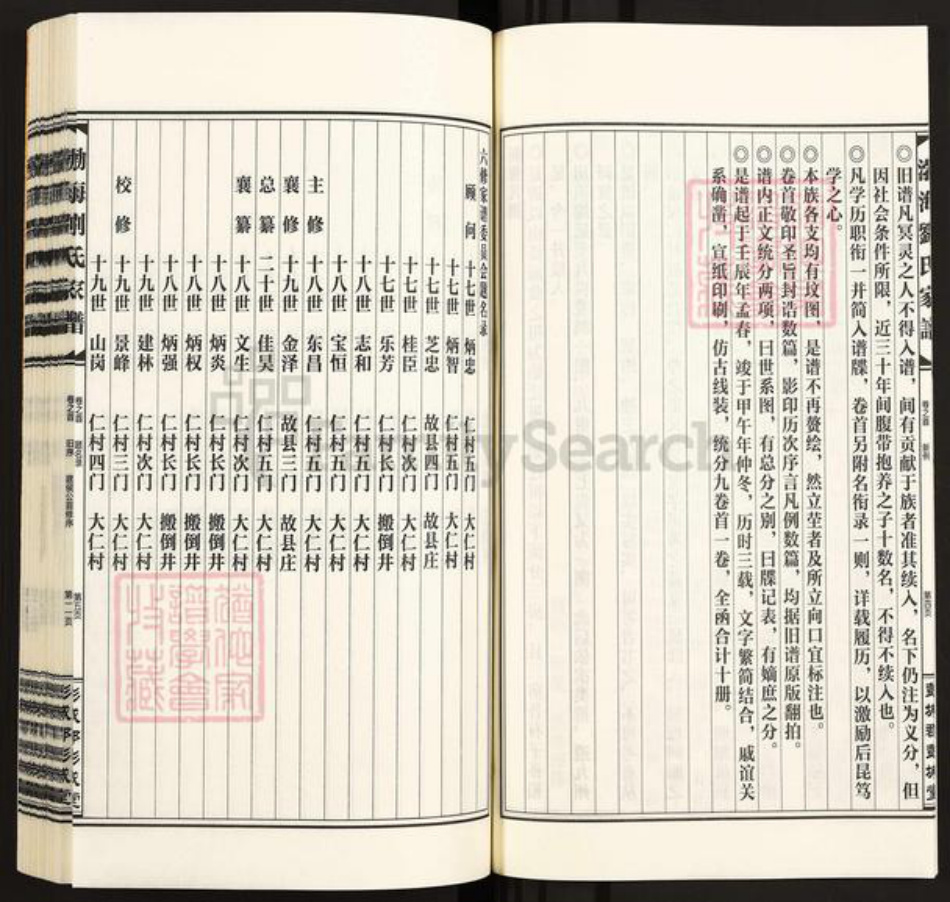 渤海劉氏家譜
卷之首 新例
第四页
◎旧谱凡冥灵之人不得入谱，间有贡献于族者准其续入，名下仍注为义分，但
因社会条件所限，近三十年间腹带抱养之子十数名，不得不续入也。
◎凡学历职衔一并简入谱牒，卷首另附名衔录一则，详载履历，以激励后昆笃
学之心。
◎本族各支均有坟图，是谱不再赘绘，然立茔者及所立向口宜标注也。
◎卷首敬印圣旨封诰数篇，影印历次序言凡例数篇，均据旧谱原版翻拍。
◎谱内正文统分两项，曰世系图，有总分之别，曰牒记表，有嫡庶之分。
◎是谱起于壬辰年孟春，竣于甲午年仲冬，历时三载，文字繁简结合，戚谊关
系确凿，宣纸印刷，仿古线装，统分九卷首一卷，全函合计十册。
六修家谱委员会题名录
顾问 十七世 炳忠 仁村五门 大仁村
十七世 炳智 仁村五门 大仁村
十七世 芝忠 故县四门 故县庄
十七世 桂臣 仁村次门 大仁村
十七世 乐芳 仁村长门 搬倒井
十八世 志和 仁村五门 大仁村
十八世 宝恒 仁村五门 大仁村
主修 十八世 东昌 仁村五门 大仁村
襄修 十九世 金泽 故县三门 故县庄
总纂 二十世 佳昊 仁村五门 大仁村
襄纂 十八世 文生 仁村次门 大仁村
十八世 炳炎 仁村长门 搬倒井
十八世 炳权 仁村长门 搬倒井
十八世 炳强 仁村长门 搬倒井
十九世 建林 仁村次门 大仁村
校修 十九世 景峰 仁村三门 大仁村
十九世 山岗 仁村四门 大仁村
卷之首 题名录
第五页